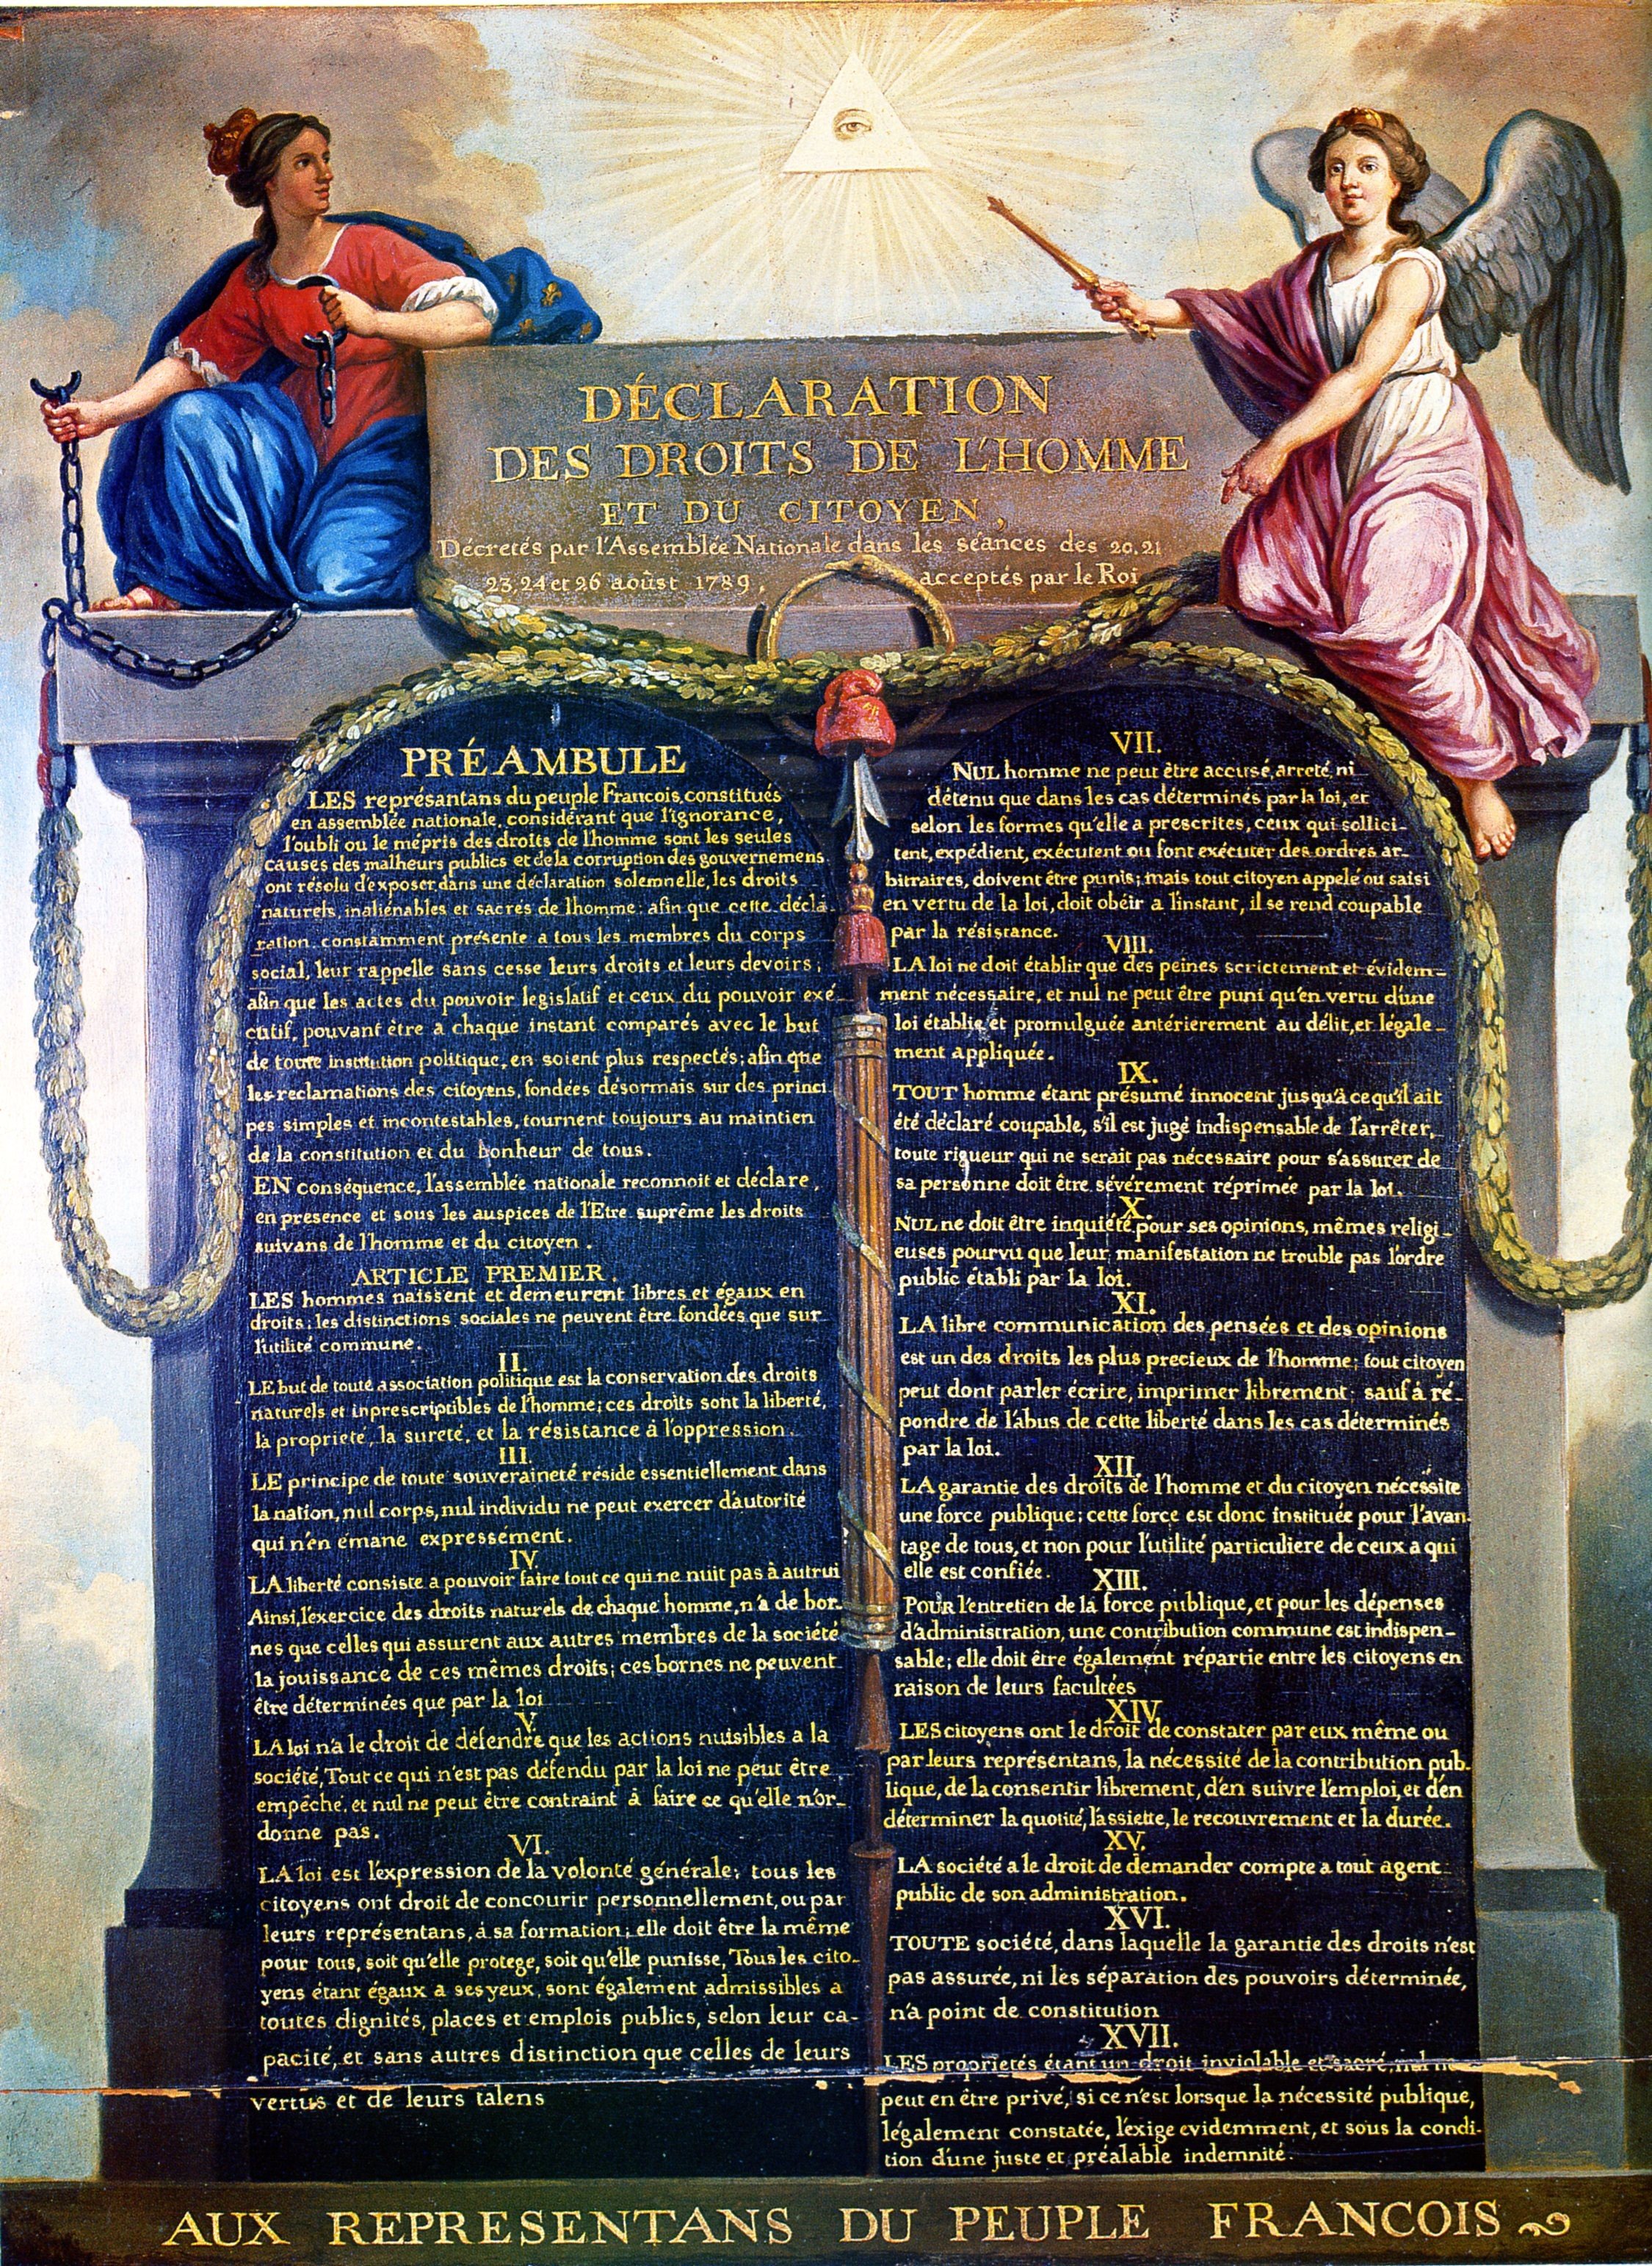 DÉCLARATION
DES DROITS DE L'HOMME
ET DU CITOYEN,
Décretés par l'Assemblée Nationale dans les séances des 20, 21
23, 24 et 26 aoûst 1789, acceptés par le Roi
PRÉAMBULE
LES représantans du peuple Francois, constitués
en assemblée nationale, considérant que l'ignorance,
l'oubli ou le mépris des droits de l'homme sont les seules
causes des malheurs publics et de la corruption des gouvernemens
ont résolu d'exposer, dans une déclaration solemnelle, les droits
naturels, inaliénables et sacrés de l'homme; afin que cette décla-
ration, constamment présente a tous les membres du corps
social, leur rappelle sans cesse leurs droits et leurs devoirs;
afin que les actes du pouvoir legislatif et ceux du pouvoir exé-
cutif, pouvant être a chaque instant comparés avec le but
de toute institution politique, en soient plus respectés; afin que
les reclamations des citoyens, fondées désormais sur des princi-
pes simples et incontestables, tournent toujours au maintien
de la constitution et du bonheur de tous.
EN conséquence, l'assemblée nationale reconnoit et déclare,
en presence et sous les auspices de l'Etre suprême les droits
suivans de l'homme et du citoyen.
ARTICLE PREMIER.
LES hommes naissent et demeurent libres et égaux en
droits; les distinctions sociales ne peuvent être fondées que sur
l'utilité commune.
II.
LE but de toute association politique est la conservation des droits
naturels et inprescriptibles de l'homme; ces droits sont la liberté,
la propriété, la sureté, et la résistance à l'oppression.
III.
LE principe de toute souveraineté réside essentiellement dans
la nation, nul corps, nul individu ne peut exercer d'autorité
qui n'en émane expressément.
IV.
LA liberté consiste a pouvoir faire tout ce qui ne nuit pas à autrui
Ainsi, l'exercice des droits naturels de chaque homme, n'a de bor-
nes que celles qui assurent aux autres membres de la société
la jouissance de ces mêmes droits; ces bornes ne peuvent
être déterminées que par la loi
V.
LA loi n'a le droit de défendre que les actions nuisibles a la
société, Tout ce qui n'est pas défendu par la loi ne peut être
empêché, et nul ne peut être contraint à faire ce qu'elle n'or-
donne pas.
VI.
LA loi est l'expression de la volonté générale; tous les
citoyens ont droit de concourir personnellement, ou par
leurs représentans, à sa formation; elle doit être la même
pour tous, soit qu'elle protege, soit qu'elle punisse, Tous les cito-
yens étant égaux a ses yeux, sont également admissibles a
toutes dignités, places et emplois publics, selon leur ca-
pacité, et sans autres distinction que celles de leurs
vertus et de leurs talens
VII.
NUL homme ne peut être accusé, arreté, ni
détenu que dans les cas déterminés par la loi, et
selon les formes qu'elle a prescrites, ceux qui sollici-
tent, expédient, exécutent ou font exécuter des ordres ar-
bitraires, doivent être punis; mais tout citoyen appelé ou saisi
en vertu de la loi, doit obéir a l'instant, il se rend coupable
par la résistance.
VIII.
LA loi ne doit établir que des peines strictement et évidem-
ment nécessaire, et nul ne peut être puni qu'en vertu d'une
loi établie et promulguée antérierement au délit, et légale-
ment appliquée.
IX.
TOUT homme étant présumé innocent jusqu'à ce qu'il ait
été déclaré coupable, s'il est jugé indispensable de l'arrêter,
toute rigueur qui ne serait pas nécessaire pour s'assurer de
sa personne doit être sévérement réprimée par la loi.
X.
NUL ne doit être inquiété pour ses opinions, mêmes religi-
euses pourvu que leur manifestation ne trouble pas l'ordre
public établi par la loi.
XI.
LA libre communication des pensées et des opinions
est un des droits les plus precieux de l'homme; tout citoyen
peut dont parler écrire, imprimer librement; sauf à ré-
pondre de l'abus de cette liberté dans les cas déterminés
par la loi.
XII.
LA garantie des droits de l'homme et du citoyen nécessite
une force publique; cette force est donc instituée pour l'avan-
tage de tous, et non pour l'utilité particuliere de ceux a qui
elle est confiée.
XIII.
POUR l'entretien de la force publique, et pour les dépenses
d'administration, une contribution commune est indispen-
sable; elle doit être également répartie entre les citoyens en
raison de leurs facultées
XIV.
LES citoyens ont le droit de constater par eux même ou
par leurs représentans, la nécessité de la contribution pub-
lique, de la consentir librement, d'en suivre l'emploi, et d'en
déterminer la quotité, l'assiette, le recouvrement et la durée.
XV.
LA société a le droit de demander compte a tout agent
public de son administration.
XVI.
TOUTE société, dans laquelle la garantie des droits n'est
pas assurée, ni les séparation des pouvoirs déterminée,
n'a point de constitution
XVII.
LES propriétés étant un droit inviolable et sacré, nul ne
peut en être privé, si ce n'est lorsque la nécessité publique,
légalement constatée, l'exige evidemment, et sous la condi-
tion d'une juste et préalable indemnité.
AUX REPRESENTANS DU PEUPLE FRANCOIS